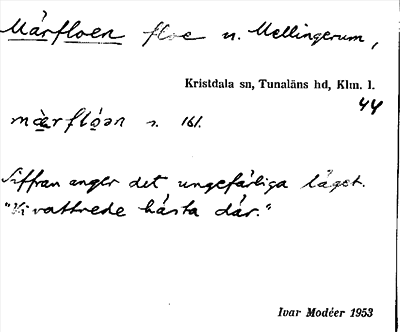 Mårfloen floe n. Mellingerum,
Kristdala sn, Tunaläns hd, Klm. l.
44
mæ̀rflóən s. 161.
Siffran anger det ungefärliga läget.
"Vi vattnede hästa där."
Ivar Modéer 1953